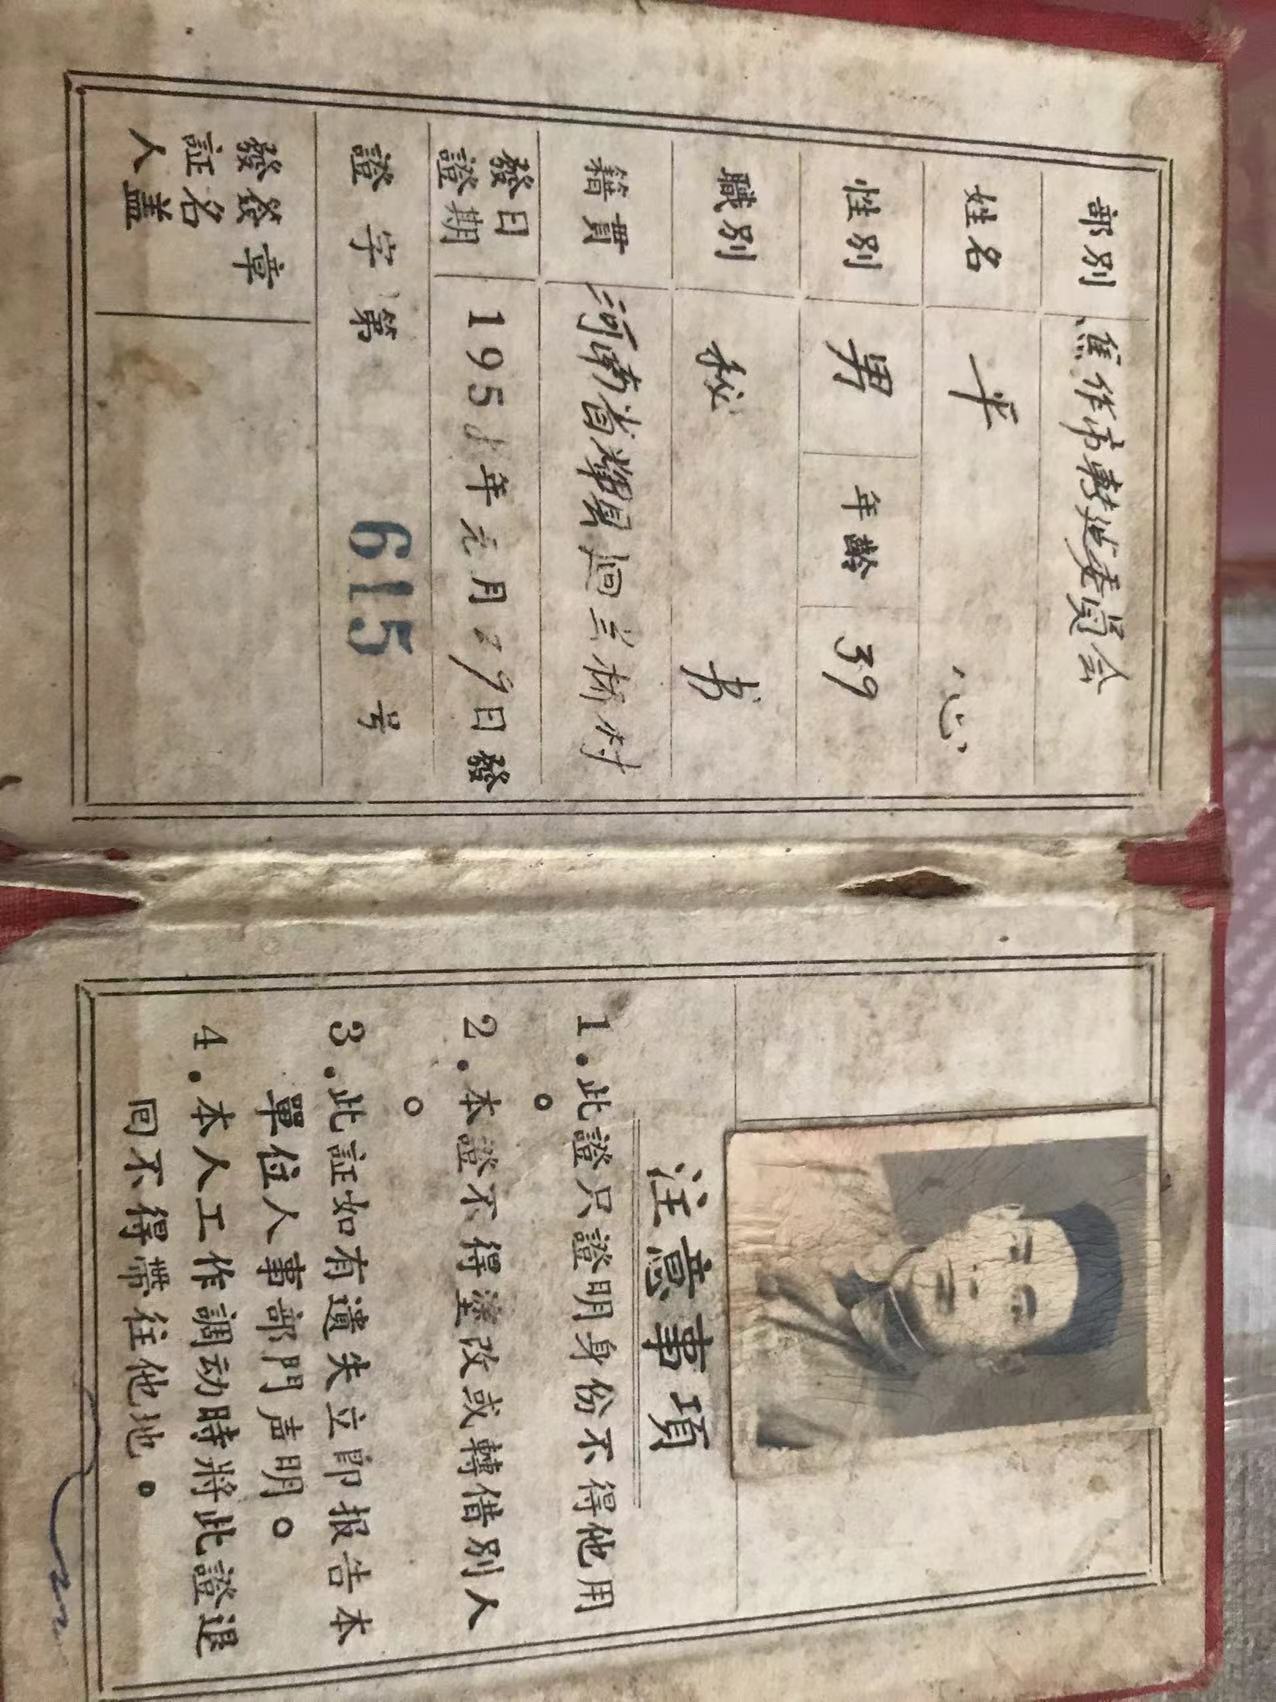 部別 焦作市轉建委員会
姓名 平心
性別 男 年齡 39
職別 秘书
籍貫 河南省輝县廻兰桥村
發證日期 195 年元月 9日發
證字第 615 号
發証人簽名盖章
注意事項
1.此證只證明身份不得他用
。
2.本證不得塗改或轉借別人
。
3.此証如有遺失立即报告本
單位人事部門声明。
4.本人工作調动時將此證退
回不得帶往他地。